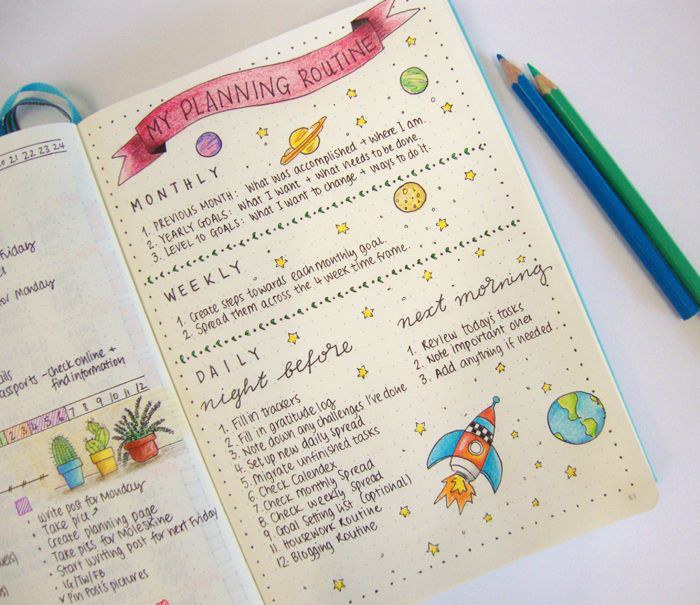 20 21 22 23 24
Friday
for Monday
assports - Check online +
find information
2 3 4 5 6 7 8 9 10 11 12
• Write post for Monday
• Take pics
• Create planning page
• Take pics for Moleskine
• Start writing post for next Friday
• IG/TW/FB
• Pin Post's pictures
MY PLANNING ROUTINE
MONTHLY
1. PREVIOUS MONTH: what was accomplished + where I am.
2. YEARLY GOALS: what I want + what needs to be done.
3. LEVEL 10 GOALS: what I want to change + ways to do it.
WEEKLY
1. Create steps towards each monthly goal.
2. Spread them across the 4 week time frame.
DAILY
night before
1. Fill in trackers
2. Fill in gratitude log
3. Note down any challenges I've done
4. Set up new daily spread
5. Migrate unfinished tasks
6. Check Calendex
7. Check monthly Spread
8. Check weekly spread
9. Goal Setting list (optional)
11. Housework Routine
12. Blogging Routine
next morning
1. Review today's tasks
2. Note important ones
3. Add anything if needed.